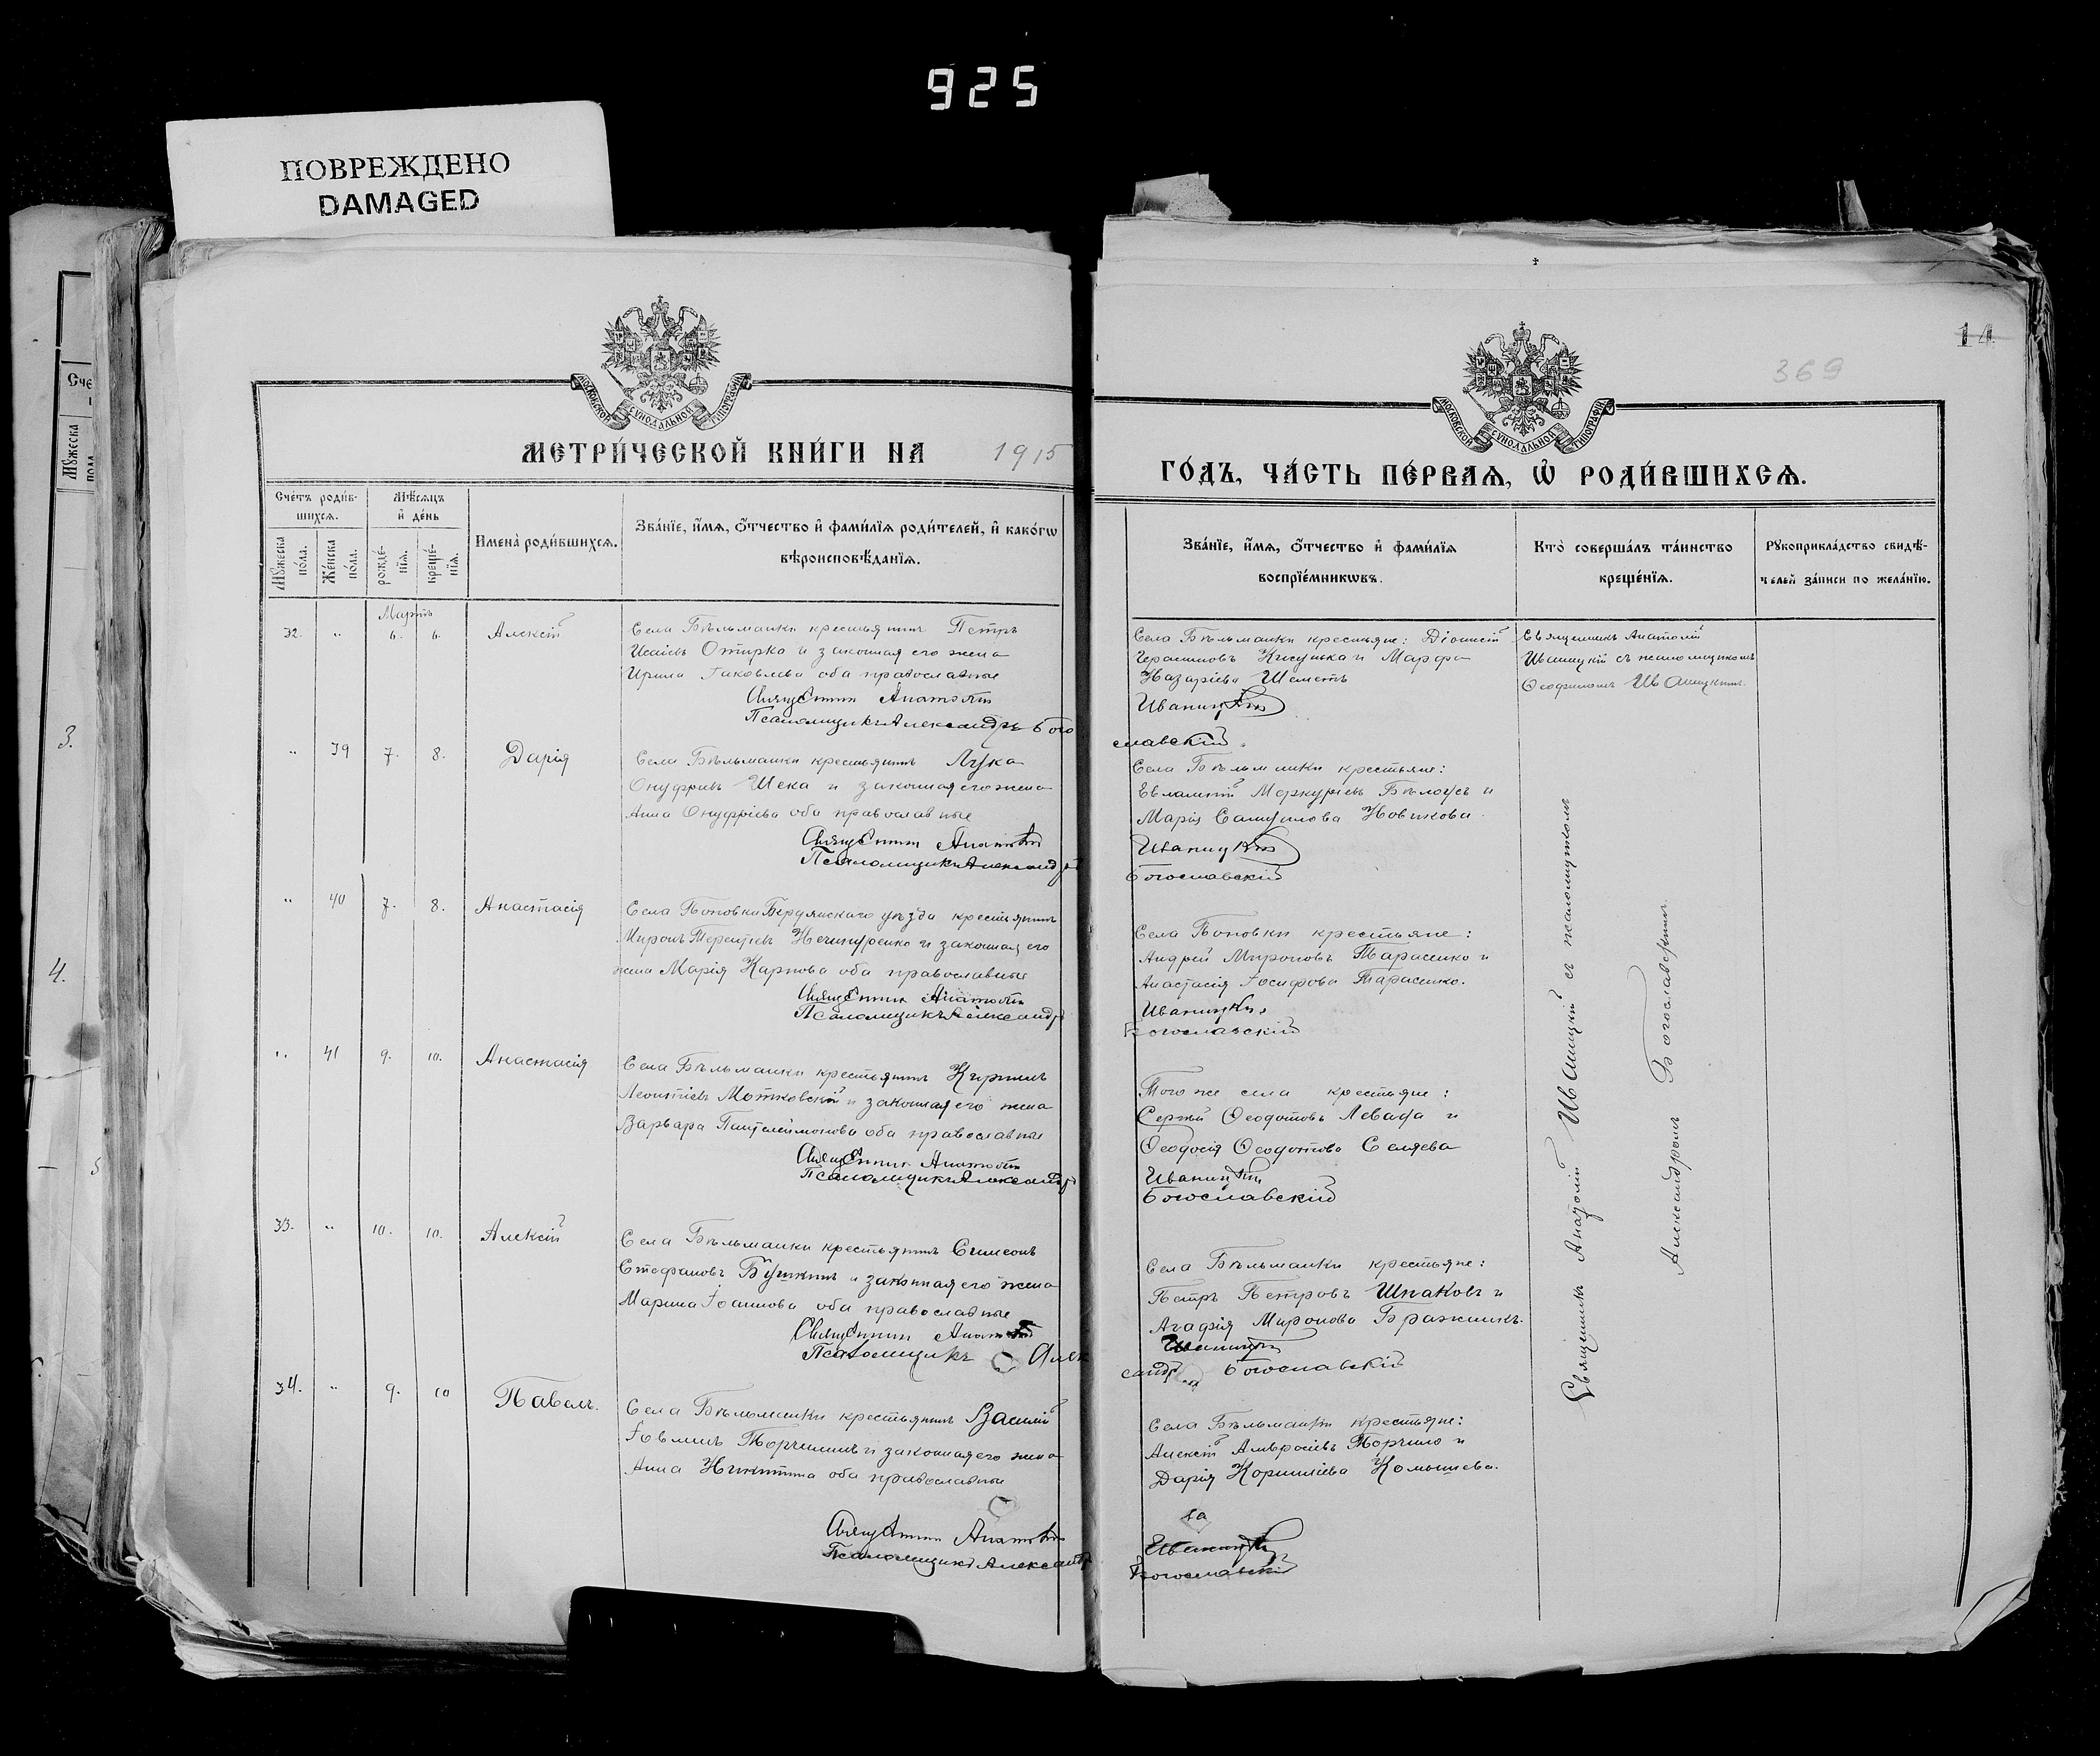 925
ПОВРЕЖДЕНО
DAMAGED
14
369
МОСКОВСКОЙ СѴНОДАЛЬНОЙ ТИПОГРАФІИ
МОСКОВСКОЙ СѴНОДАЛЬНОЙ ТИПОГРАФІИ
МЕТРИ́ЧЕСКОЙ КНИ́ГИ НА 1915
ГО́ДЪ, ЧА́СТЬ ПЕ́РВАѦ, Ѡ҆ РОДИ́ВШИХСѦ.
Сче́тъ роди́вшихсѧ.
Мѣ́сѧцъ и҆ де́нь
Мꙋ́жеска по́ла.
Же́нска по́ла.
рожде́нїѧ.
креще́нїѧ.
Имена̀ роди́вшихсѧ.
Зва́нїе, и҆́мѧ, ѻ҆́тчество и҆ фами́лїѧ роди́телей, и҆ како́гѡ
вѣроисповѣ́данїѧ.
Зва́нїе, и҆́мѧ, ѻ҆́тчество и҆ фами́лїѧ
воспрїе́мникѡвъ.
Кто̀ соверша́лъ та́инство
креще́нїѧ.
Рꙋкоприкла́дство свидѣ́-
телей за́писи по жела́нїю.
Мартъ
32. " 6. 6. Алексій
Села Бѣльманки крестьянинъ Петръ
Исаіевъ Отирка и законная его жена
Ирина Іаковлева оба православные
Священник Анатолій
Псаломщикъ Александръ Бого
Села Бѣльманки крестьяне: Діонисій
Герасимовъ и Марфа
Назаріева Шеметъ
Иваницкій
славскій
Священникъ Анатолій
Иваницкій съ псаломщикомъ
Ѳеофиломъ Иваницкимъ.
" 39 7. 8. Дарія
Села Бѣльманки крестьянинъ Лука
Онуфріевъ Шека и законная его жена
Анна Онуфріева оба православные
Священник Анатолій
Псаломщикъ Александръ
Села Бѣльманки крестьяне:
Евлампій Меркуріевъ Бѣлоусъ и
Марія Самуилова Новикова.
Иваницкій
Богославскій
" 40 7. 8. Анастасія
Села Поповки Бердянскаго уѣзда крестьянинъ
Миронъ Терентіевъ Нечипуренко и законная его
жена Марія Карпова оба православные
Священник Анатолій
Псаломщикъ Александръ
Села Поповки крестьяне:
Андрей Мироновъ Тарасенко и
Анастасія Іосифова Тарасенко.
Иваницкій
Богославскій
" 41 9. 10. Анастасія
Села Бѣльманки крестьянинъ Кириллъ
Леонтіевъ Мотковскій и законная его жена
Варвара Пантелеимонова оба православные
Священник Анатолій
Псаломщикъ Александръ
Того же села крестьяне:
Сергій Ѳеодотовъ Левада и
Ѳеодосія Ѳеодотова Селяева
Иваницкій
Богославскій
33. " 10. 10. Алексій
Села Бѣльманки крестьянинъ Симеонъ
Стефановъ и законная его жена
Марина Іоаннова оба православные
Священник Анатолій
Псаломщикъ Алек
Села Бѣльманки крестьяне:
Петръ Петровъ Шпаковъ и
Агафія Миронова Бражникъ.
Иваницкій
сандръ Богославскій
34. " 9. 10 Павелъ.
Села Бѣльманки крестьянинъ Василій
Іовлевъ и законная его жена
Анна Никитина оба православные
Священник Анатолій
Псаломщикъ Александръ
Села Бѣльманки крестьяне:
Алексій Амвросіевъ Торчило и
Дарія Корниліева Комышева.
Иваницкій
Богославскій
Священникъ Анатолій Иваницкій съ псаломщикомъ
Александромъ Богославскимъ.
3.
4.